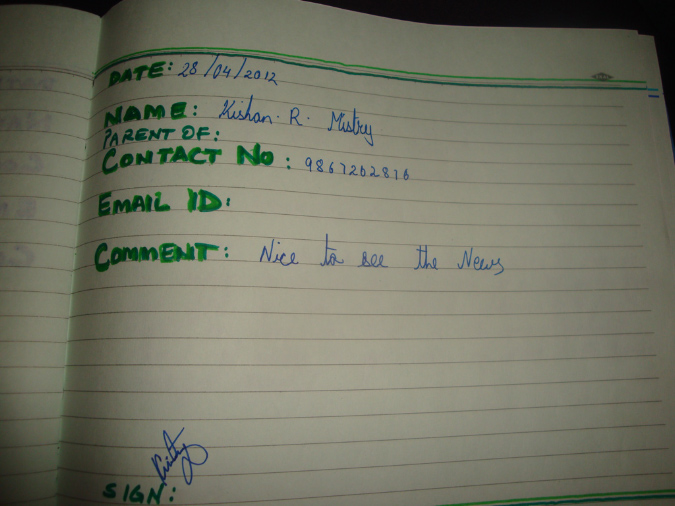 DATE: 28/04/2012
NAME: Kishan. R. Mistry
PARENT OF:
CONTACT NO: 9867202810
EMAIL ID:
COMMENT: Nice to see the News
SIGN: